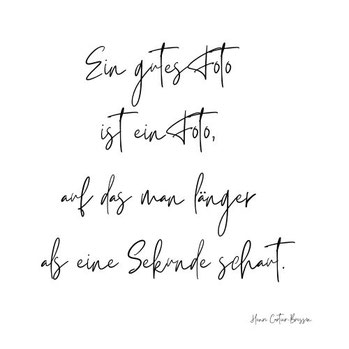 Ein gutes Foto
ist ein Foto,
auf das man länger
als eine Sekunde schaut.
Henri Cartier-Bresson